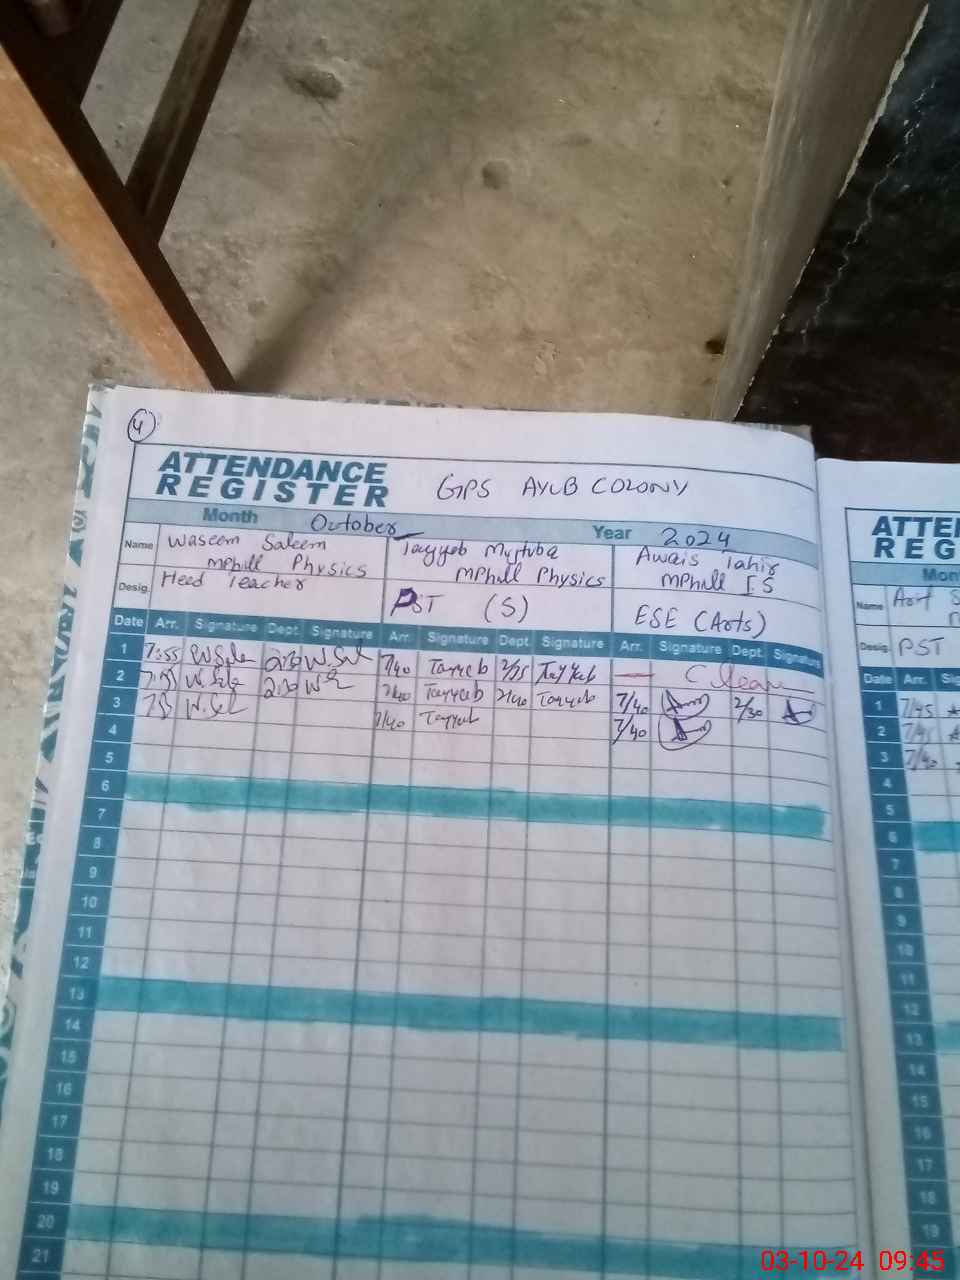 4
ATTENDANCE
REGISTER
GPS AYUB COLONY
Month October Year 2024
Name Waseem Saleem Tayyab Murtuba Awais Tahir
mphill Physics MPhill Physics MPhill I.S
Desig. Head Teacher PST (S) ESE (Arts)
Date Arr. Signature Dept. Signature Arr. Signature Dept. Signature Arr. Signature Dept. Signature
1 7:55 W.Sale 2:30 W.Sal 7/40 Tayyeb 2/35 Tayyeb — C leave
2 7:55 W.Sale 2:30 7/40 Tayyeb 2/40 Tayyeb 7/40 2/30
3 7:55 W.Sal 7/40 Tayyeb 7/40
4
5
6
7
8
9
10
11
12
13
14
15
16
17
18
19
20
21
ATTE
REG
Mon
Name
Desig. PST
Date Arr. Sig
1 7/45
2 7/45
3 7/40
4
5
6
7
8
9
10
11
12
13
14
15
16
17
18
19
03-10-24 09:45